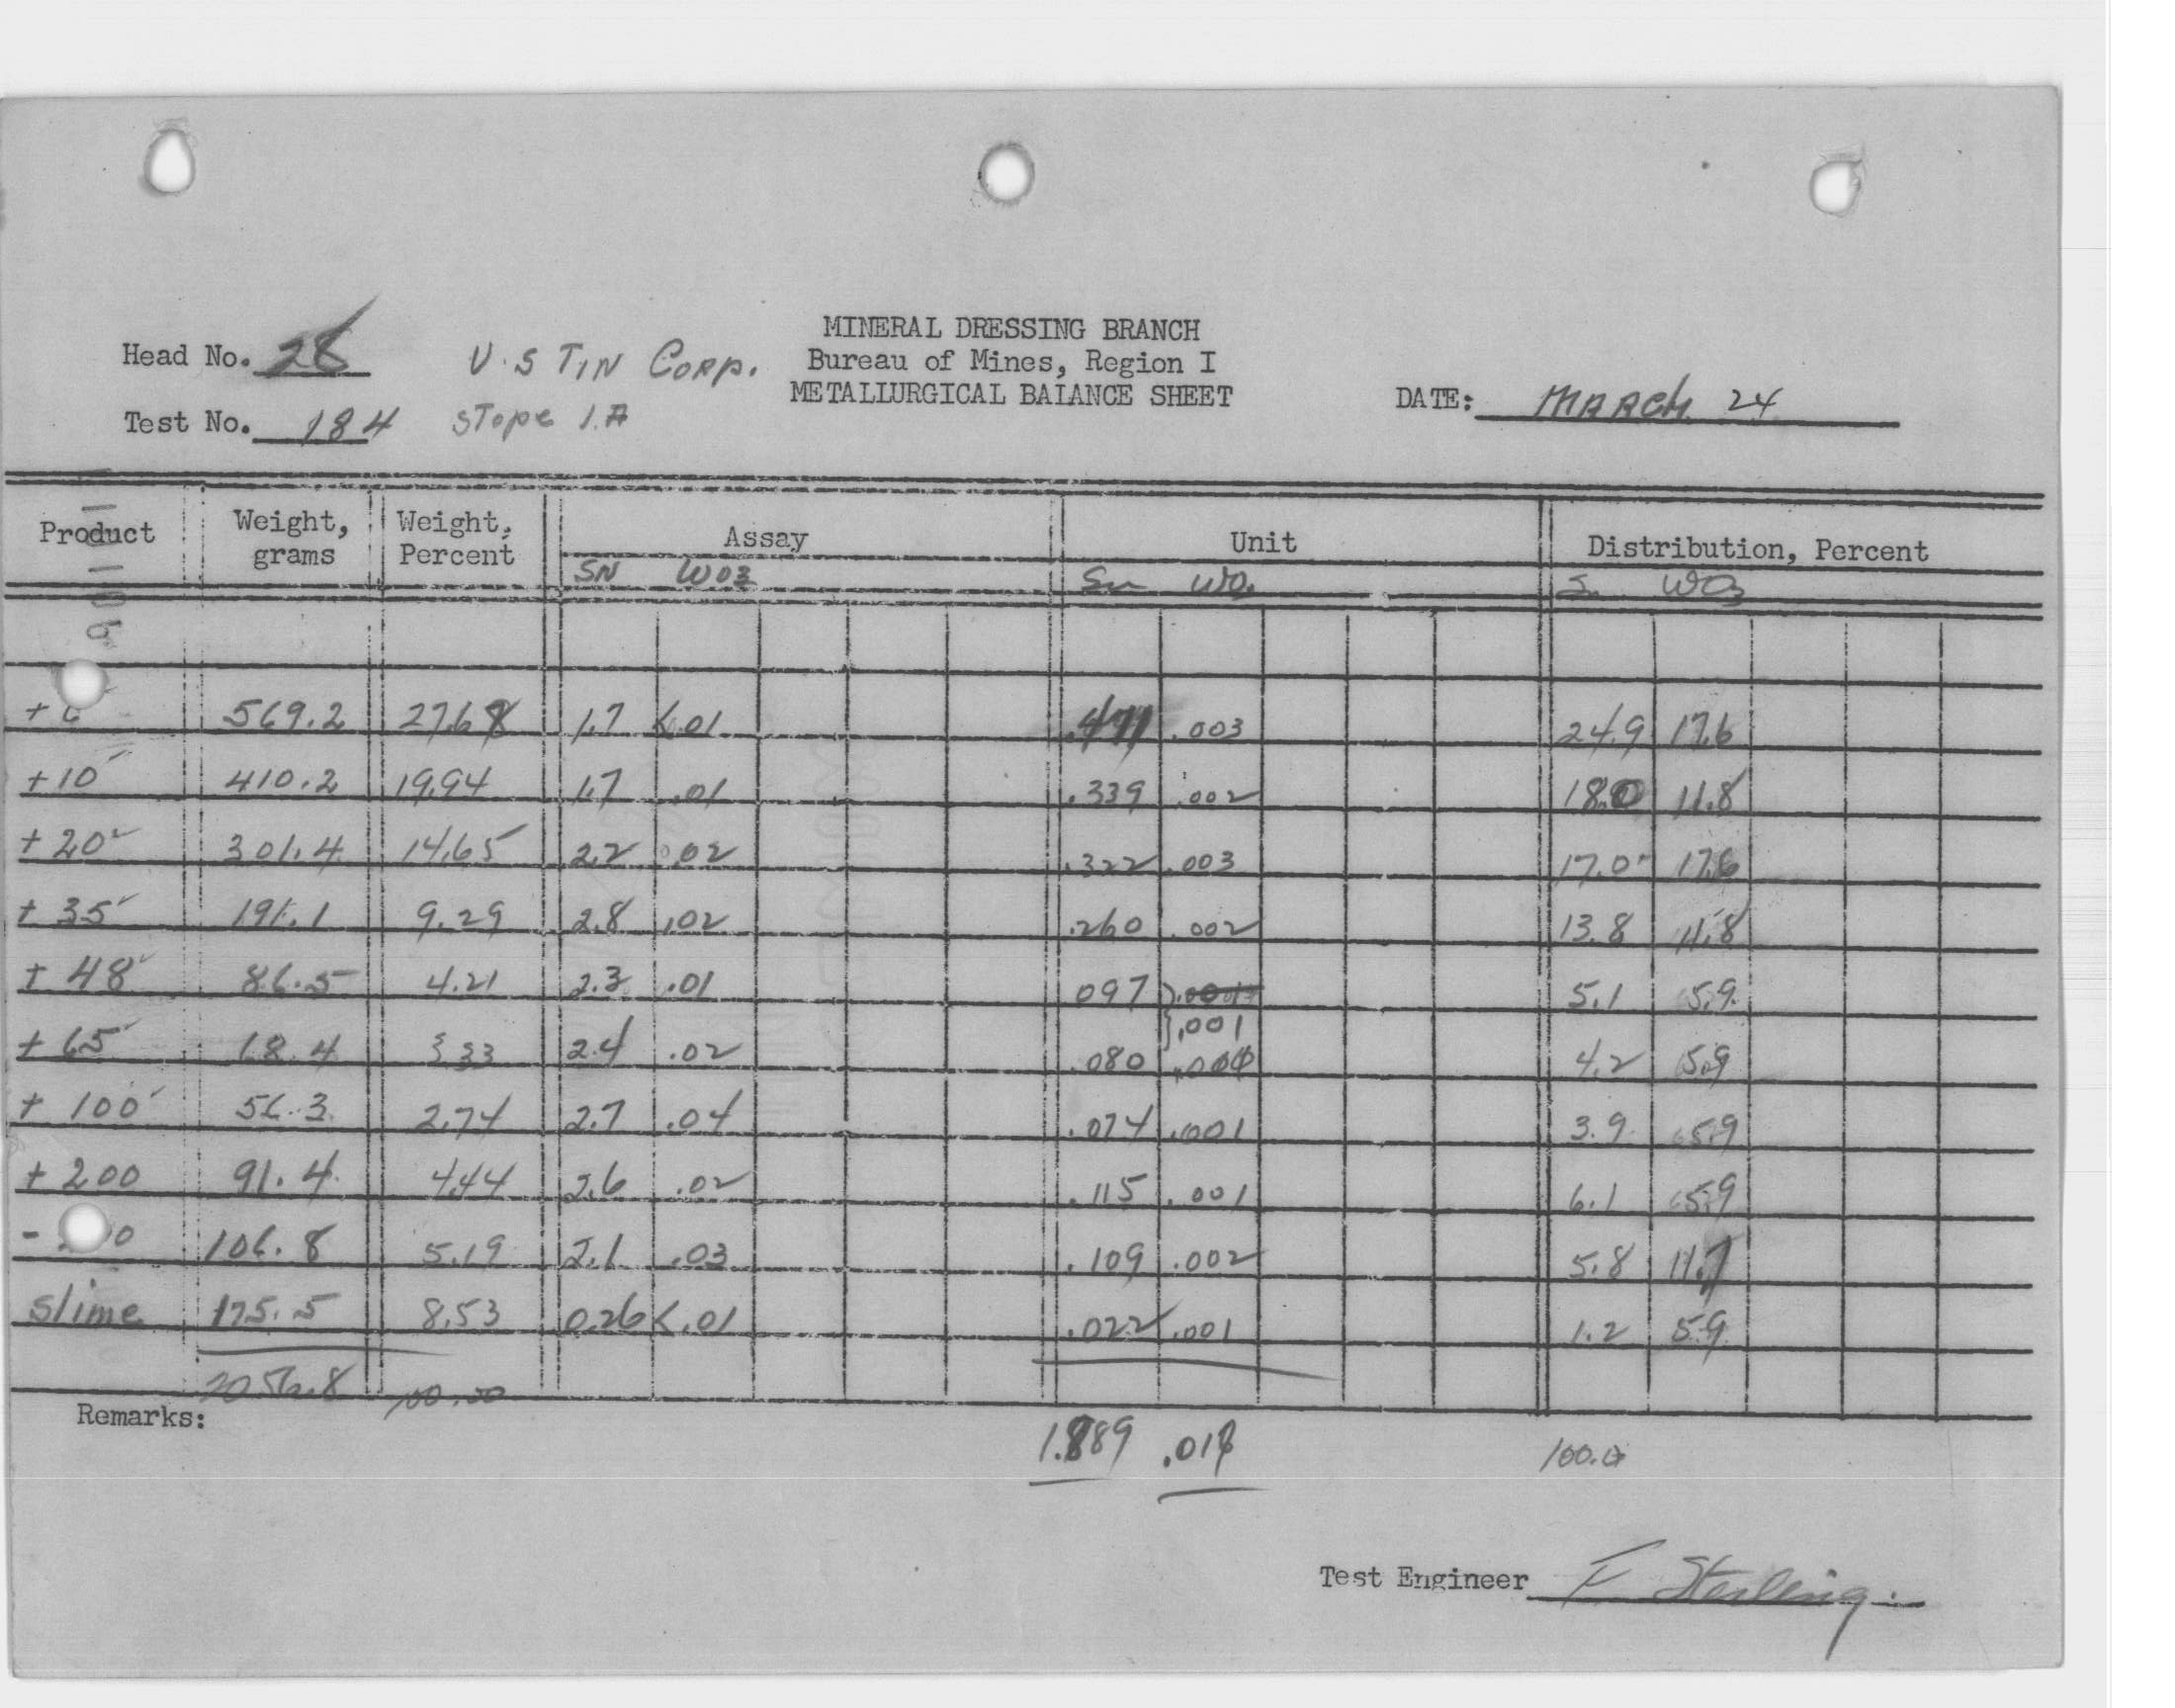 MINERAL DRESSING BRANCH
Head No. 28 U.S TIN CORP. Bureau of Mines, Region I
METALLURGICAL BALANCE SHEET DATE: MARCH 24
Test No. 184 STope 1.A
Product Weight, grams Weight, Percent Assay Unit Distribution, Percent
SN WO3 Sn WO3 S. WO3
+ 6 569.2 27.68 1.7 <.01 .471 .003 24.9 17.6
+10 410.2 19.94 1.7 .01 .339 .002 18.0 11.8
+20 301.4 14.65 2.2 .02 .322 .003 17.0 17.6
+ 35 191.1 9.29 2.8 .02 .260 .002 13.8 11.8
+ 48 86.5 4.21 2.3 .01 097 5.1 5.9
.001
+ 65 4 3.33 2.4 .02 .080 4.2 5.9
+ 100 56.3 2.74 2.7 .04 .074 .001 3.9 5.9
+ 200 91.4 4.44 2.6 .02 .115 .001 6.1 5.9
- 0 106.8 5.19 2.1 .03 .109 .002 5.8 11.7
slime 175.5 8.53 0.26 <.01 .022 .001 1.2 5.9
2056.8 100.00
Remarks:
1.889 100.0
Test Engineer F Sterling.